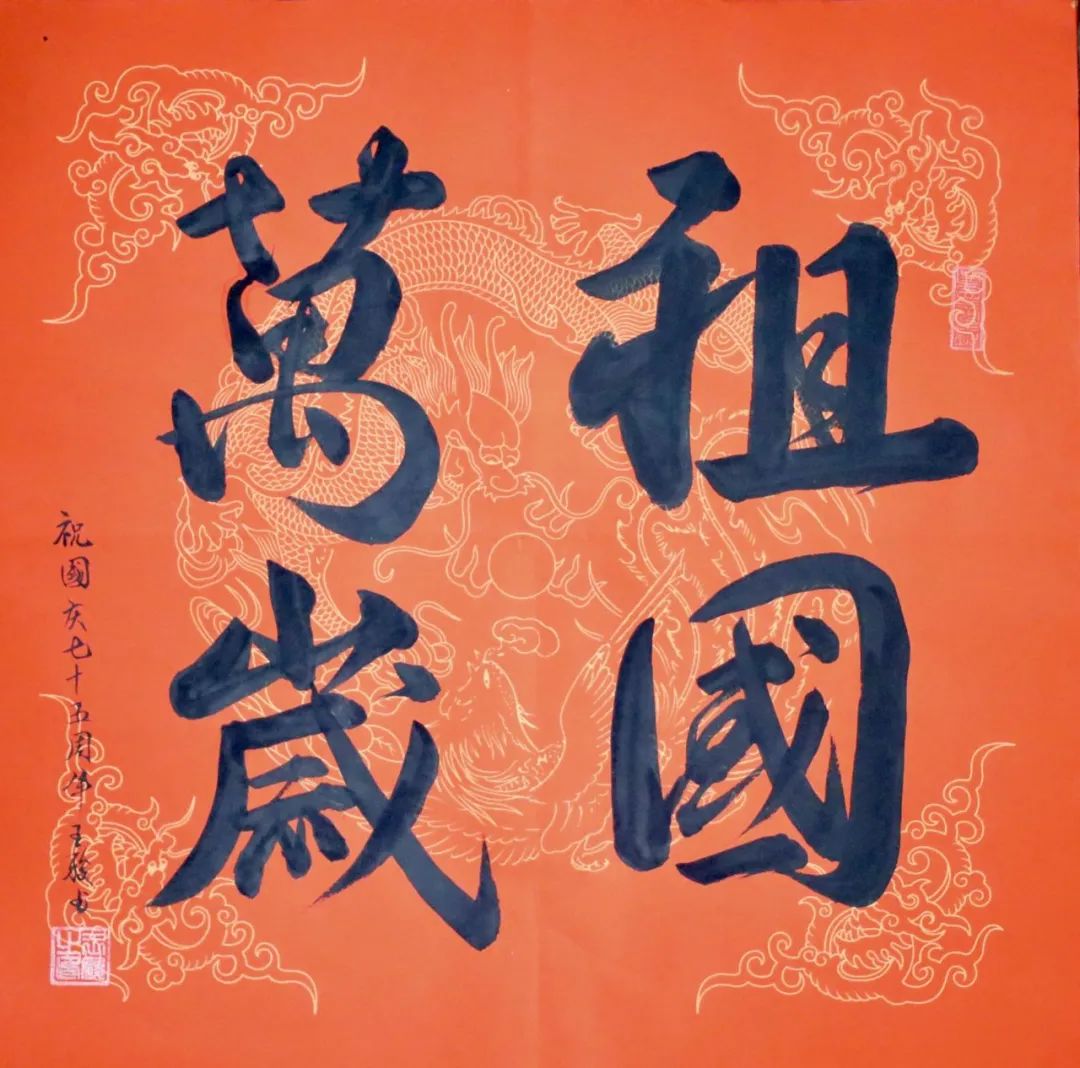 祖國
萬歲
祝國庆七十五周年 王书